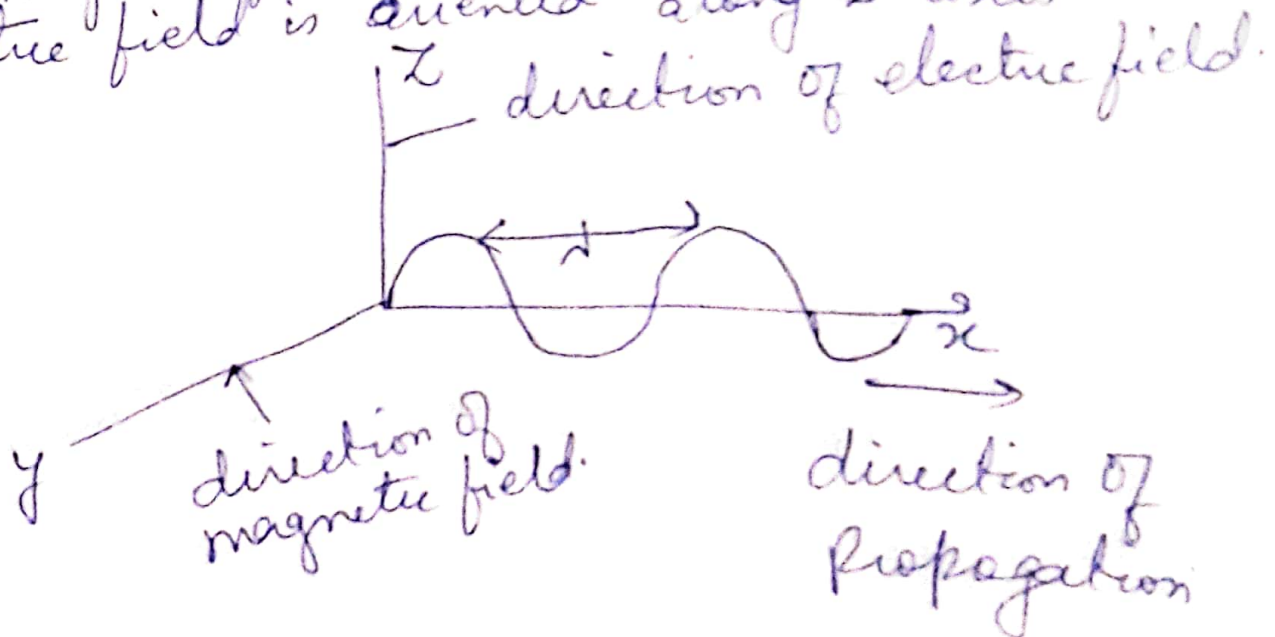 field is oriented along
Z
direction of electric field.
λ
x
y
direction of
magnetic field.
direction of
Propagation